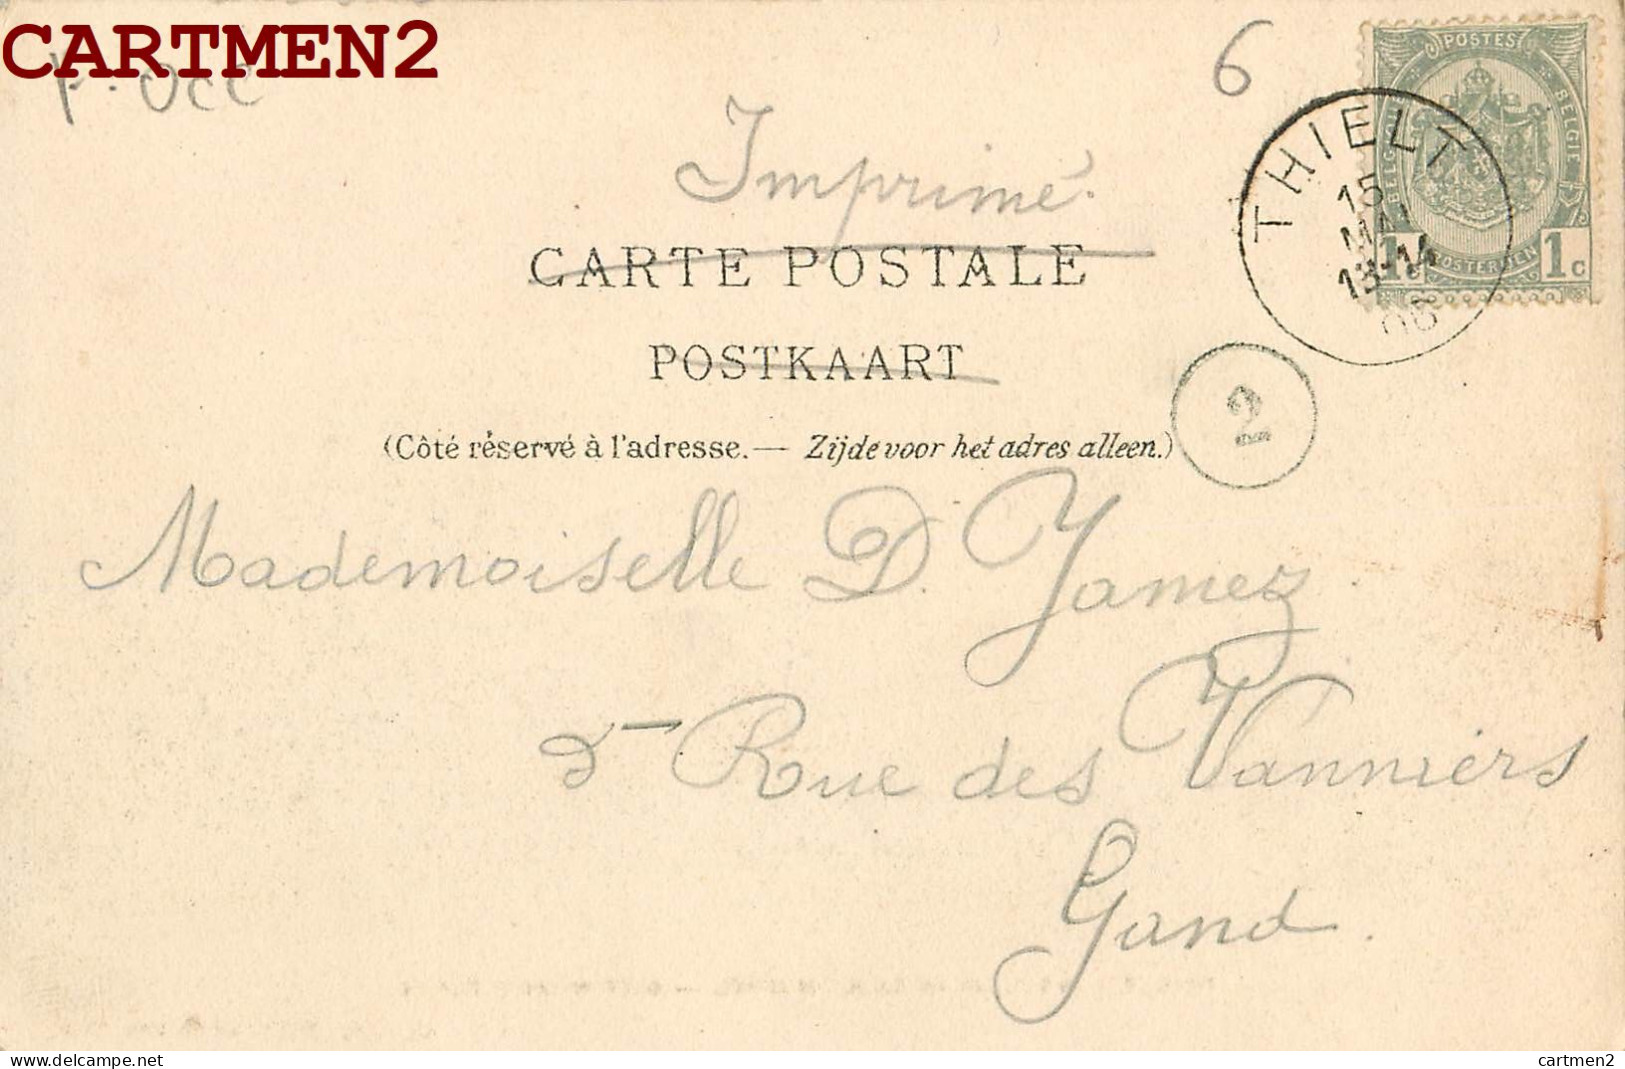 CARTMEN2
6
POSTES
BELGIQUE BELGIE
1c POSTERIJEN 1c
THIELT
15
MAI
13-14
06
Imprimé.
CARTE POSTALE
POSTKAART
(Côté réservé à l'adresse.— Zijde voor het adres alleen.)
2
Mademoiselle D. Jamez.
Rue des Vanniers
Gand.
delcampe.net
cartmen2